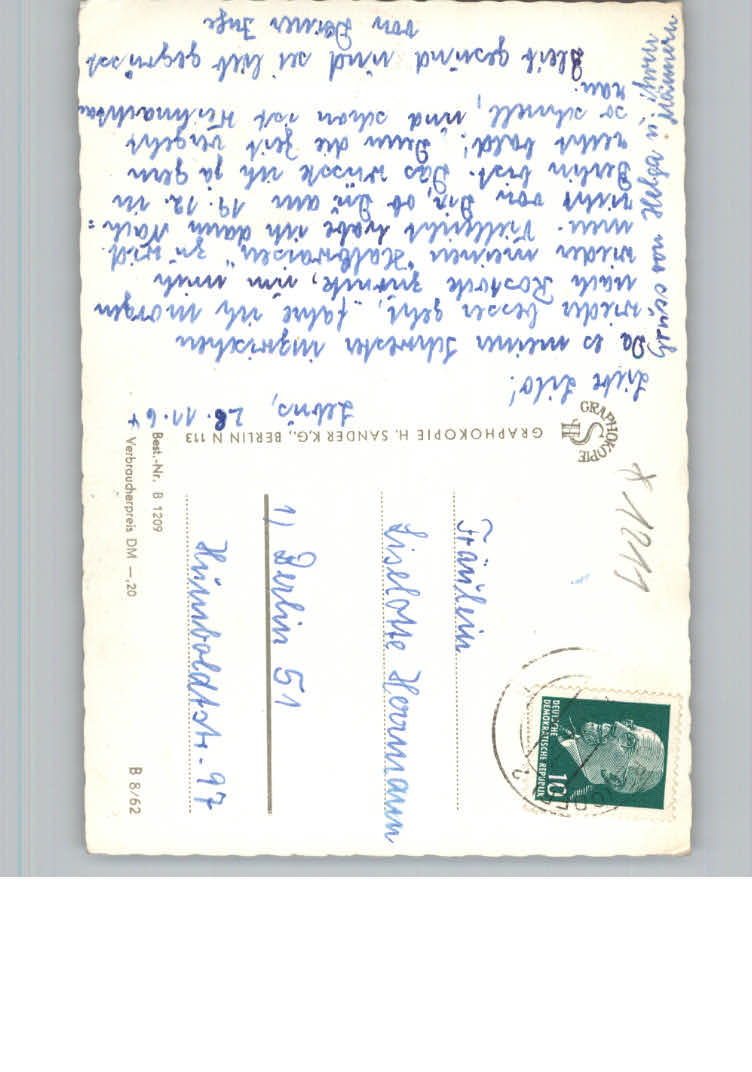 Lebus, 28.11.64
Liebe Lilo!
Da es meiner Schwester inzwischen
wieder besser geht, fahre ich morgen
nach Rostock zurück, um mich
wieder meinen "Halbwaisen" zu wid-
men. Vielleicht habe ich dann Nach=
richt von Dir, ob Du am 19.12. in
Berlin bist. Das wüsste ich ja gern
recht bald! Denn die Zeit vergeht
so schnell, und schon ist Weihnachten
ran.
Bleib gesund und sei lieb gegrüsst
von Deiner Inge
GRAPHOKOPIE H. SANDER K.G., BERLIN N 113
GRAPHOKOPIE
HS
Best.-Nr. B 1209
Verbraucherpreis DM —,20
B 8/62
* 1211
DEUTSCHE
DEMOKRATISCHE REPUBLIK
10
Fräulein
Liselotte Herrmann
1) Berlin 51
Humboldtstr. 97